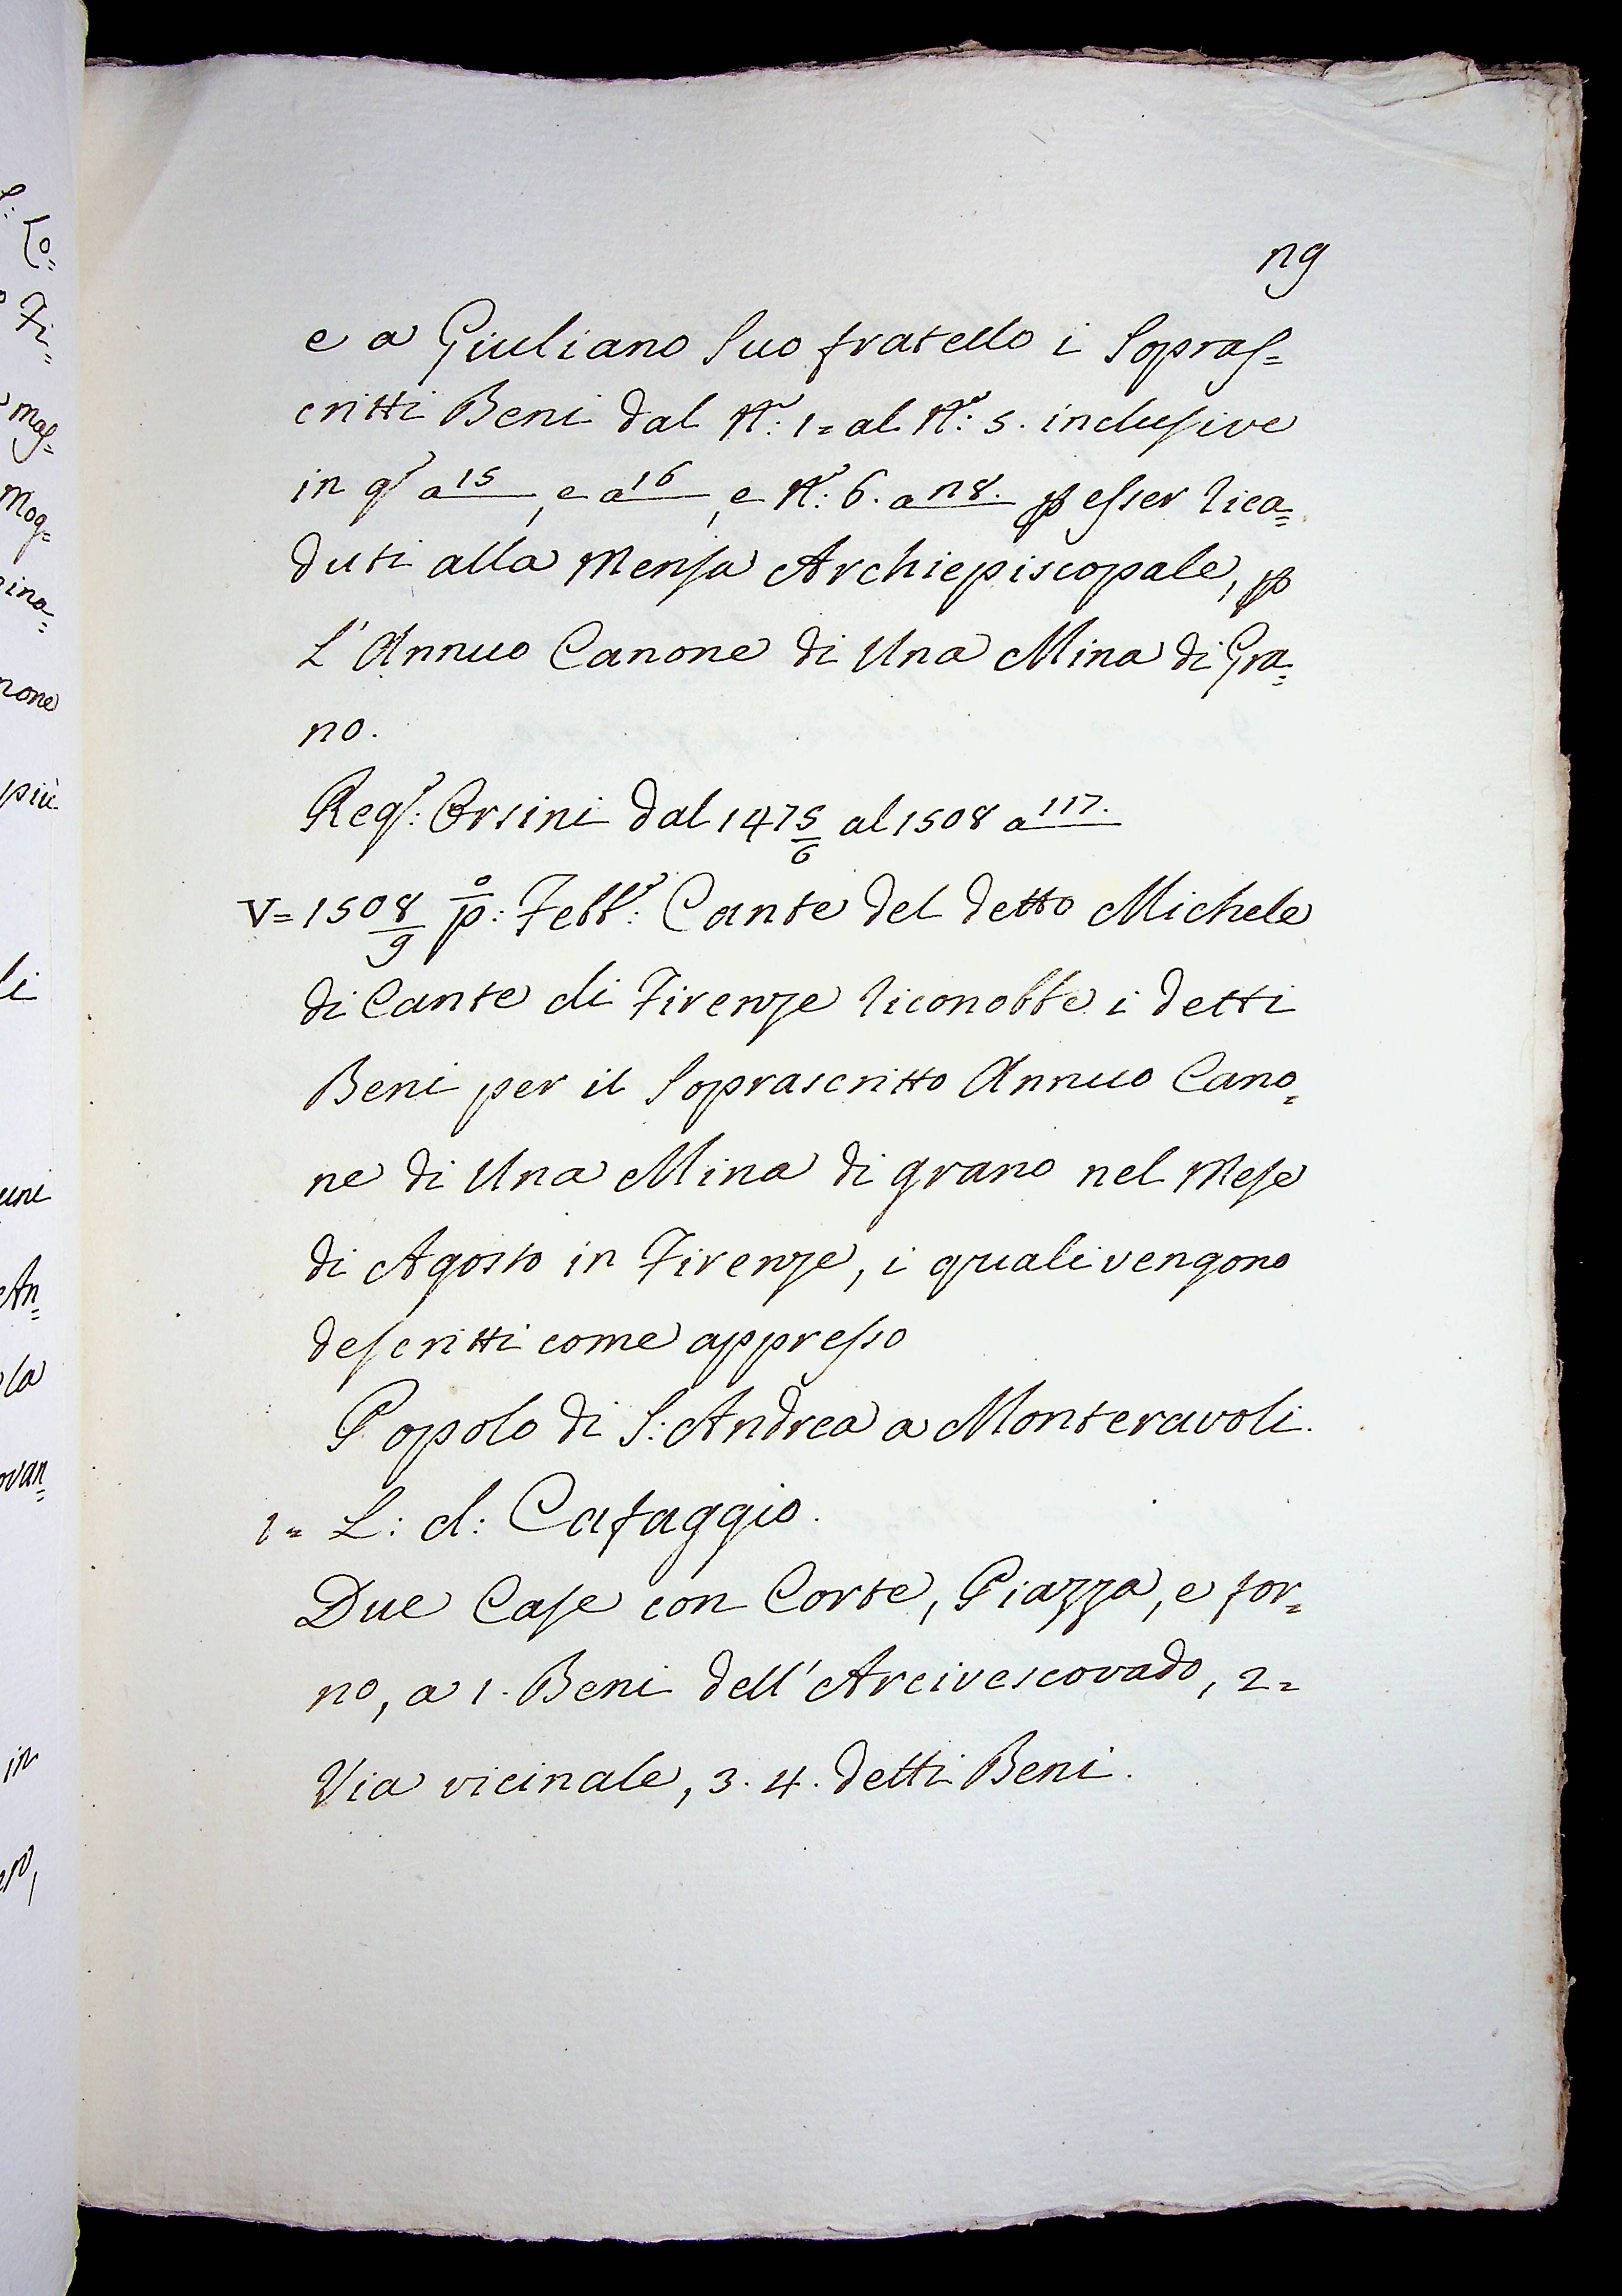 19
e a Giuliano Suo fratello i Sopras=
critti Beni dal N.º: 1= al N.º: 5. inclusive
in q.º a 15, e a 16, e N.º: 6. a 18. p esser rica=
duti alla Mensa Archiepiscopale, p
L'Annuo Canone di Una Mina di Gra=
no.
Reg.º: Orsini dal 1475/6 al 1508 a 117.
V= 1508/9 p.º: Febb.º: Cante del detto Michele
di Cante di Firenze riconobbe i detti
Beni per il Soprascritto Annuo Cano=
ne di Una Mina di grano nel Mese
di Agosto in Firenze, i quali vengono
descritti come appresso
Popolo di S: Andrea a Monteravoli.
1= L: d: Cafaggio.
Due Case con Corte, Piazza, e for=
no, a 1. Beni dell'Arcivescovado, 2=
Via vicinale, 3. 4. detti Beni.